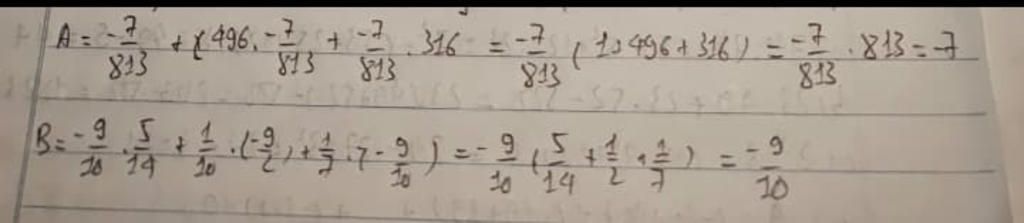 A = -7/813 + (496 . -7/813 + -7/813 . 316 = -7/813 ( 1+496+316) = -7/813 . 813 = -7
B = -9/10 . 5/14 + 1/10 . (-9/2) + 1/7 . (-9/10) = -9/10 ( 5/14 + 1/2 + 1/7 ) = -9/10